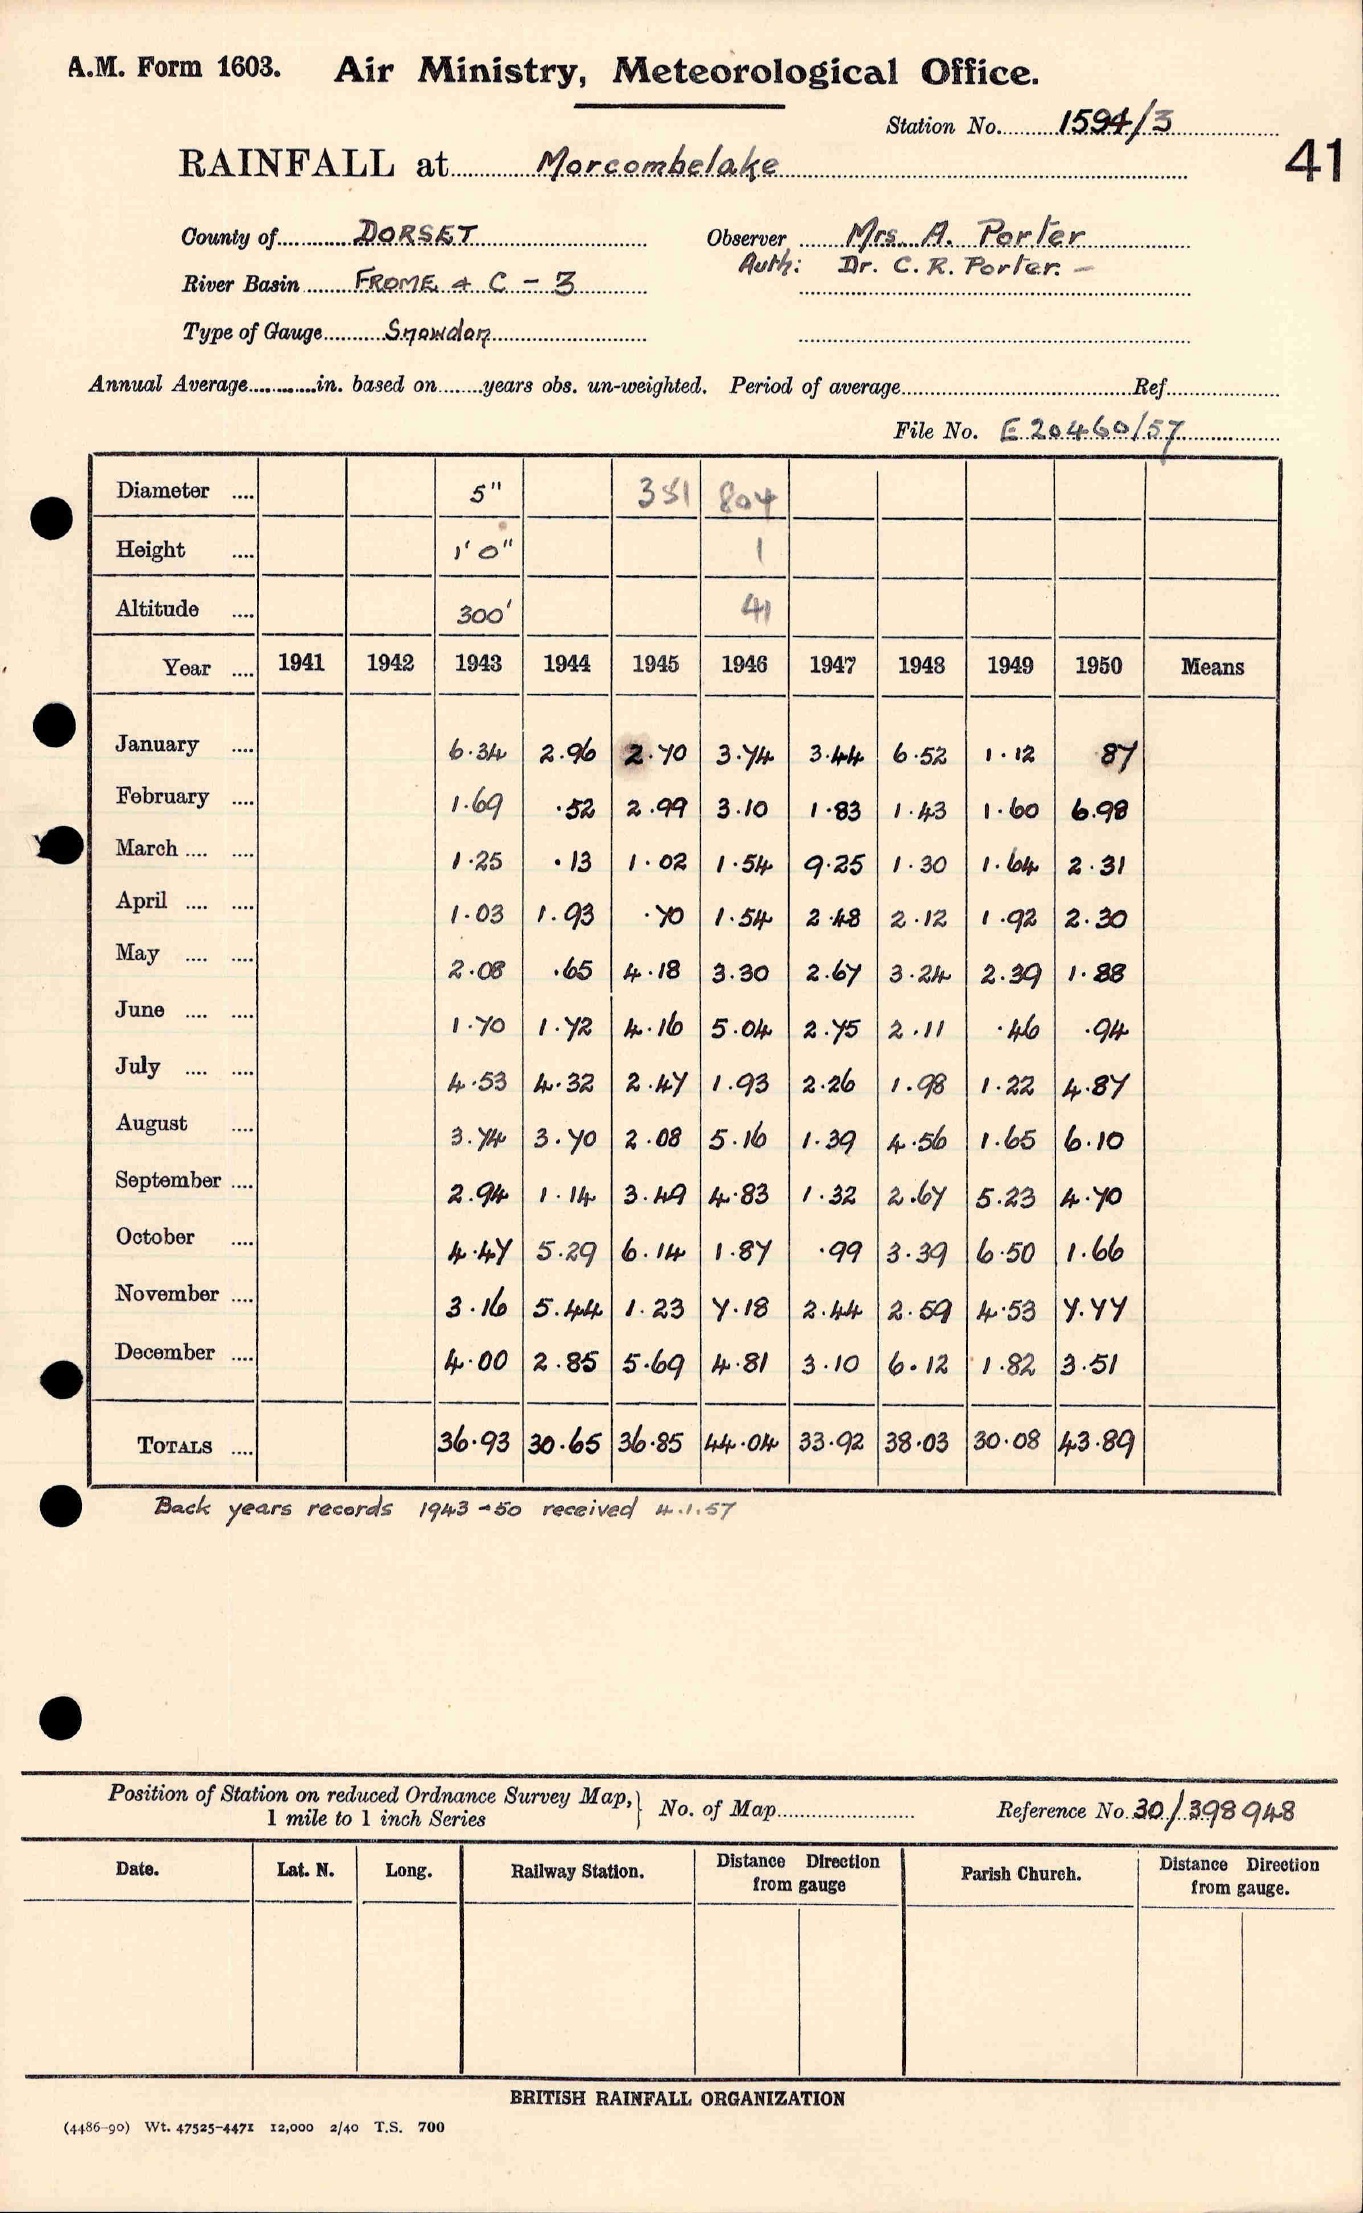 A.M. Form 1603. Air Ministry, Meteorological Office.
Station No. 1594/3
41
RAINFALL at Morcombelake
County of DORSET Observer Mrs. A. Porter
Auth: Dr. C. R. Porter. —
River Basin FROME & C - 3
Type of Gauge Snowdon
Annual Average in. based on years obs. un-weighted. Period of average Ref.
File No. E 20460/57
Diameter .... 5" 351 804
Height .... 1' 0" 1
Altitude .... 300' 41
Year .... 1941 1942 1943 1944 1945 1946 1947 1948 1949 1950 Means
January .... 6.34 2.96 2.70 3.74 3.44 6.52 1.12 .87
February .... 1.69 .52 2.99 3.10 1.83 1.43 1.60 6.98
March .... .... 1.25 .13 1.02 1.54 9.25 1.30 1.64 2.31
April .... .... 1.03 1.93 .70 1.54 2.48 2.12 1.92 2.30
May .... .... 2.08 .65 4.18 3.30 2.67 3.24 2.39 1.88
June .... .... 1.70 1.72 4.16 5.04 2.75 2.11 .46 .94
July .... .... 4.53 4.32 2.47 1.93 2.26 1.98 1.22 4.87
August .... 3.74 3.70 2.08 5.16 1.39 4.56 1.65 6.10
September .... 2.94 1.14 3.49 4.83 1.32 2.67 5.23 4.70
October .... 4.47 5.29 6.14 1.87 .99 3.39 6.50 1.66
November .... 3.16 5.44 1.23 7.18 2.44 2.59 4.53 7.77
December .... 4.00 2.85 5.69 4.81 3.10 6.12 1.82 3.51
TOTALS .... 36.93 30.65 36.85 44.04 33.92 38.03 30.08 43.89
Back years records 1943-50 received 4.1.57
Position of Station on reduced Ordnance Survey Map,
1 mile to 1 inch Series } No. of Map Reference No. 30/398948
Date. Lat. N. Long. Railway Station. Distance from gauge Direction Parish Church. Distance Direction from gauge.
BRITISH RAINFALL ORGANIZATION
(4486-90) Wt. 47525-4471 12,000 2/40 T.S. 700